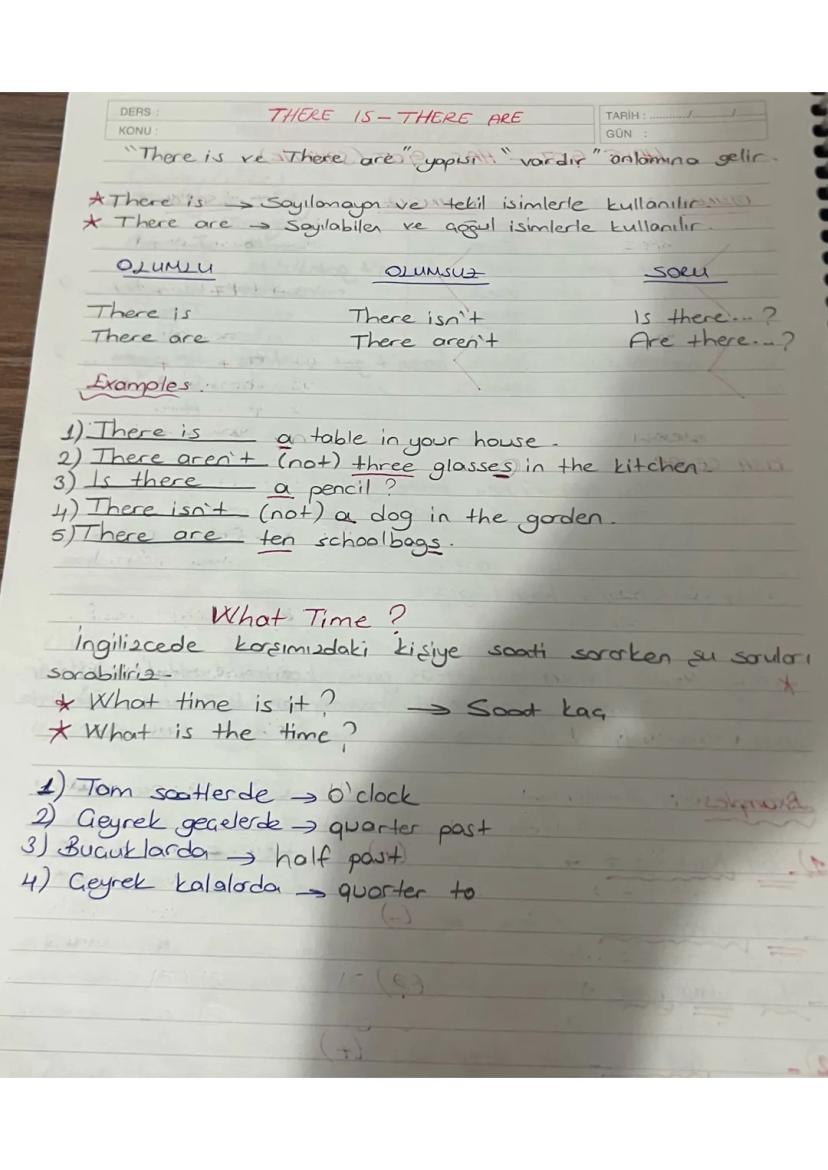 DERS :
THERE IS - THERE ARE
TARİH : ........../............/............
KONU :
GÜN :
"There is ve There are" yapısı "vardır" anlamına gelir.
* There is → Sayılamayan ve tekil isimlerle kullanılır.
* There are → Sayılabilen ve çoğul isimlerle kullanılır.
OLUMLU OLUMSUZ SORU
There is There isn't Is there...?
There are There aren't Are there...?
Examples :
1) There is a table in your house.
2) There aren't (not) three glasses in the kitchen.
3) Is there a pencil ?
4) There isn't (not) a dog in the garden.
5) There are ten schoolbags.
What Time ?
İngilizcede karşımızdaki kişiye saati sorarken şu soruları
sorabiliriz.
* What time is it ? → Saat kaç
* What is the time ?
1) Tam saatlerde → o'clock
2) Çeyrek geçelerde → quarter past
3) Buçuklarda → half past
4) Çeyrek kalalarda → quarter to